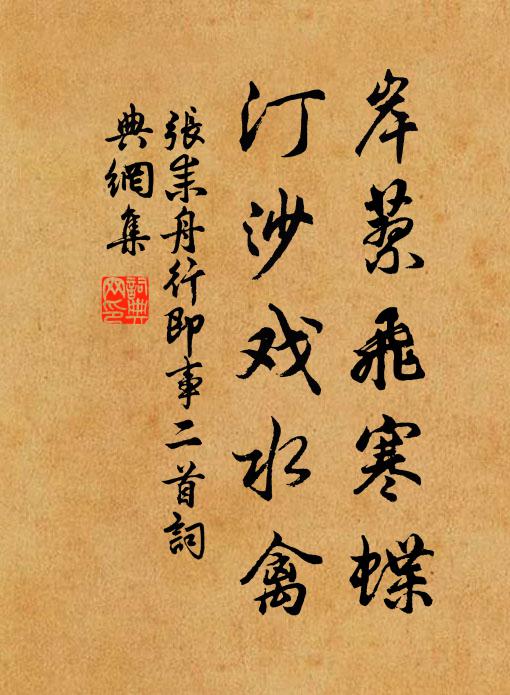 岸蓼飛寒蝶
汀沙戏水禽
張耒舟行即事二首詞
典網集
詞典
网印